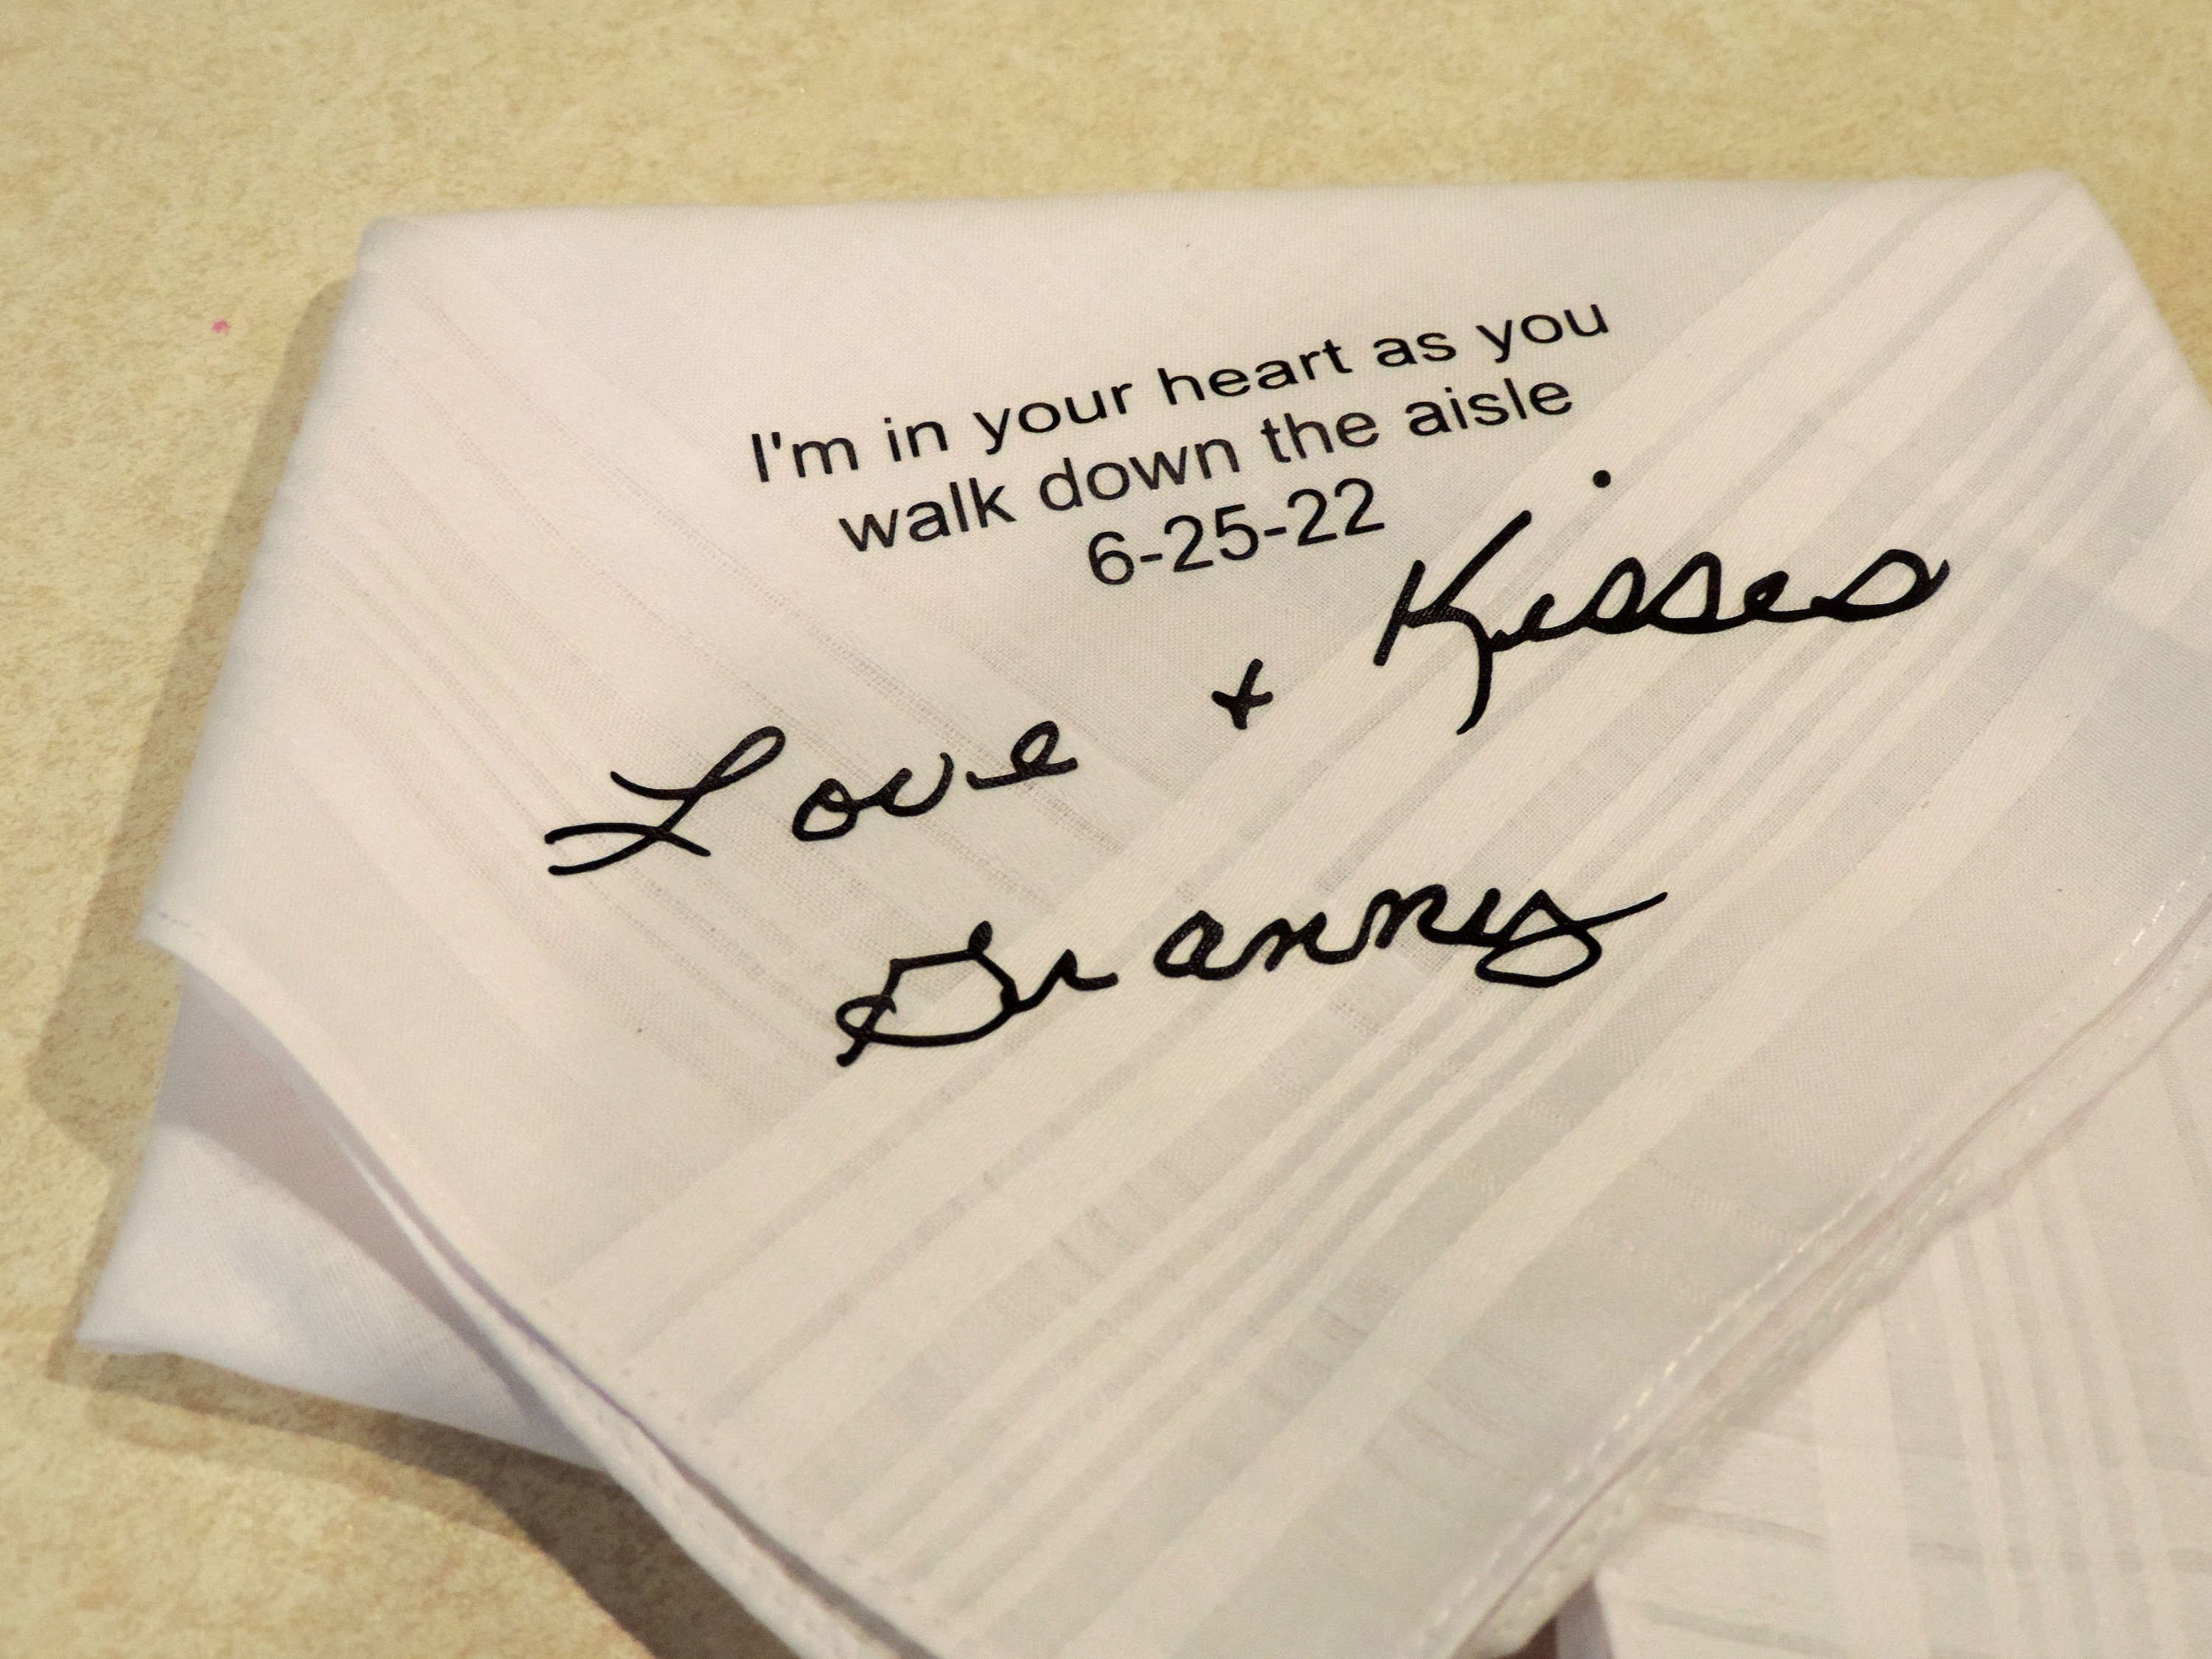 I'm in your heart as you
walk down the aisle
6-25-22
Love + Kisses
Granny